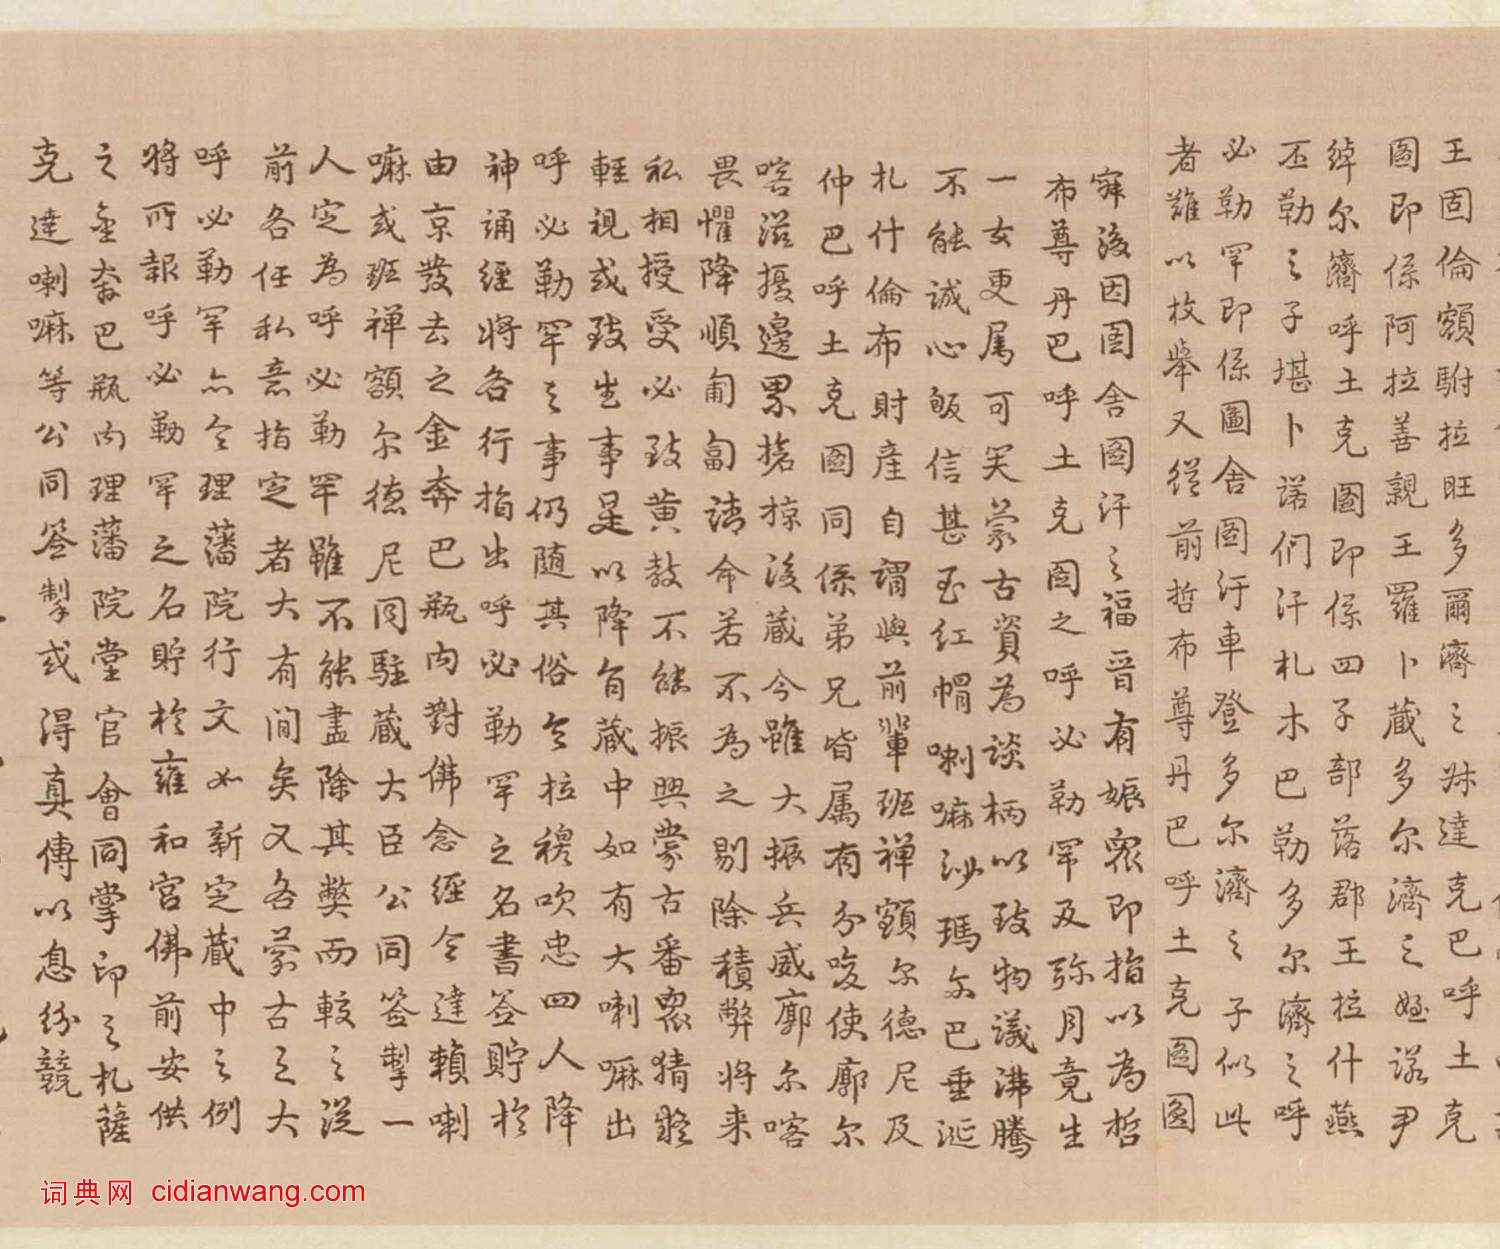 王固倫額駙拉旺多爾濟之叔達克巴呼土克
圖即係阿拉善親王羅卜藏多尔濟之姪諾尹
綽尔濟呼土克圖即係四子部落郡王拉什燕
丕勒之子堪卜諾們汗札木巴勒多尔濟之呼
必勒罕即係圖舍圖汗車登多尔濟之子似此
者難以枚舉又從前哲布尊丹巴呼土克圖圓
寂後因圖舍圖汗之福晋有娠衆即指以為哲
布尊丹巴呼土克圖之呼必勒罕及弥月竟生
一女更属可笑蒙古資為談柄以致物議沸騰
不能誠心皈信甚至紅帽喇嘛沙瑪尔巴垂涎
札什倫布財產自謂與前輩班禅額尔德尼及
仲巴呼土克圖同係弟兄皆属有分唆使廓尔
喀滋擾邊界搶掠後藏今雖大振兵威廓尔喀
畏懼降順匍匐請命若不為之剔除積弊將来
私相授受必致黄教不能振興蒙古番衆猜疑
輕視或致生事是以降旨藏中如有大喇嘛出
呼必勒罕之事仍随其俗令拉穆吹忠四人降
神誦經將各行指出呼必勒罕之名書签貯於
由京發去之金奔巴瓶内對佛念經令達賴喇
嘛或班禅額尔德尼同駐藏大臣公同签掣一
人定為呼必勒罕雖不能盡除其獘而較之從
前各任私意指定者大有間矣又各蒙古之大
呼必勒罕亦令理藩院行文如新定藏中之例
將所報呼必勒罕之名貯於雍和宫佛前安供
之金奔巴瓶内理藩院堂官會同掌印之札薩
克達喇嘛等公同签掣或得真傳以息紛競
词典网 cidianwang.com